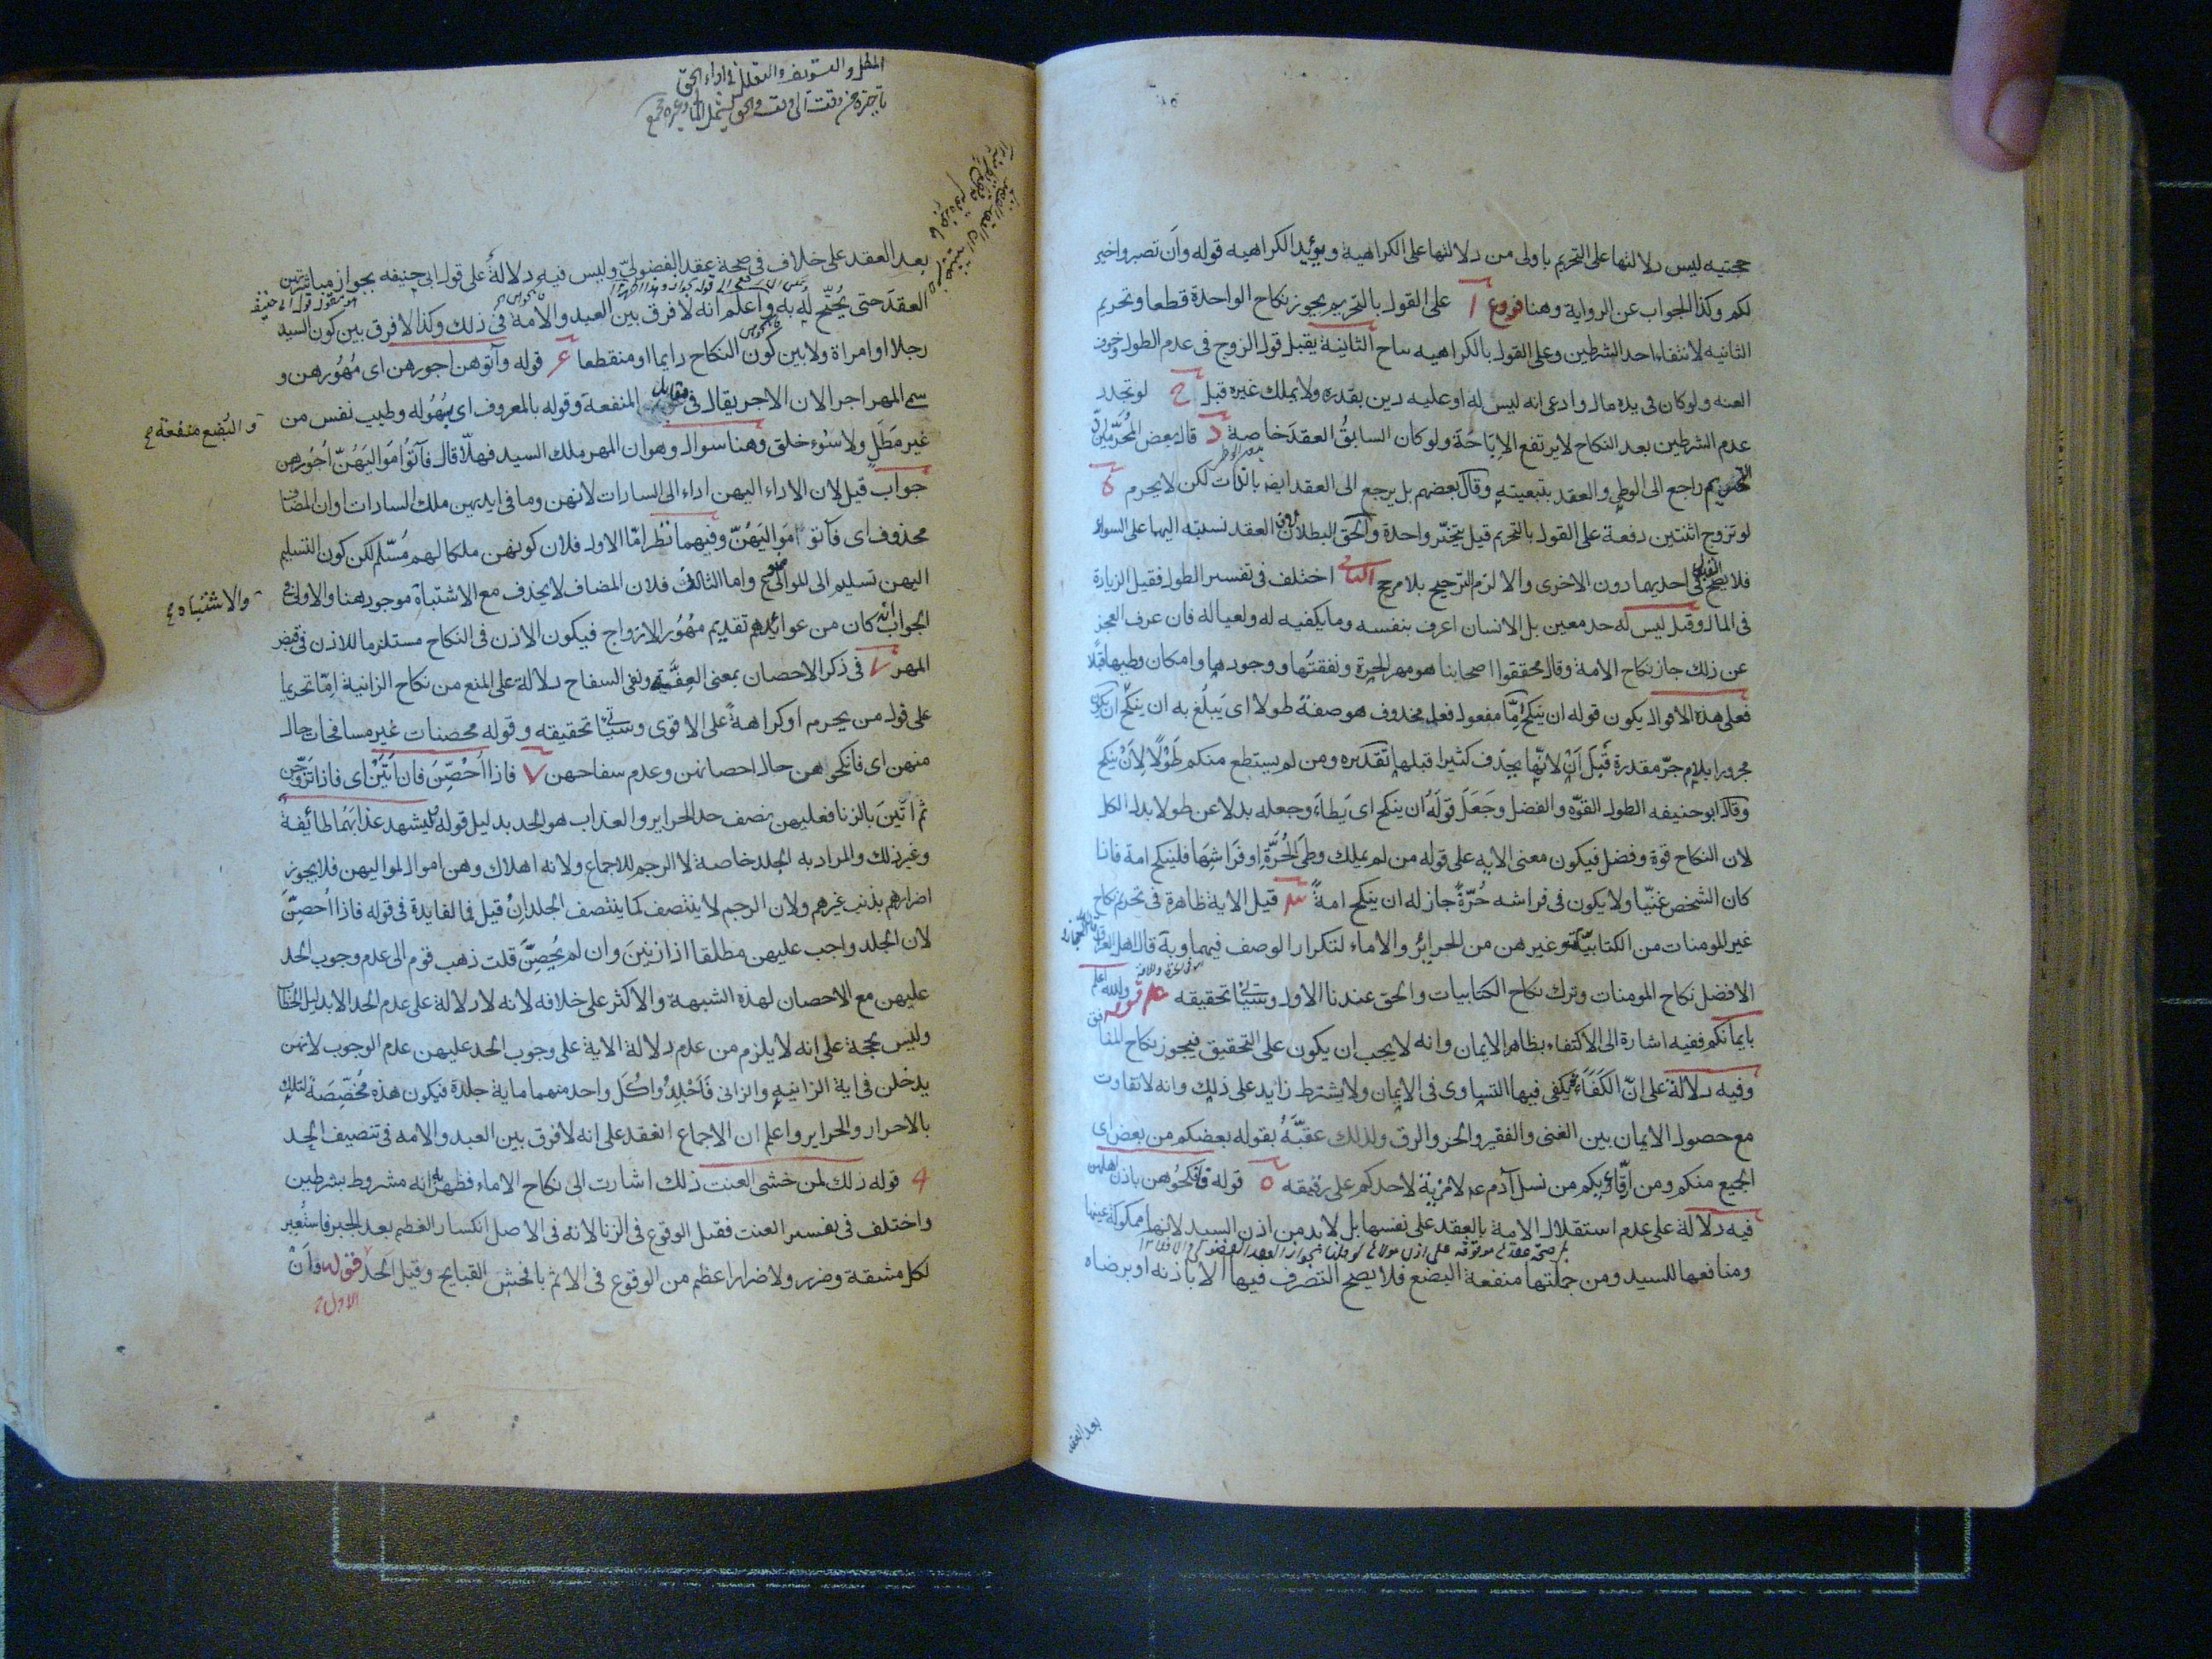 حجتيه ليس دلالتها على التحريم باولى من دلالتها على الكراهية ويؤيد الكراهيه قوله وأن تصبروا خير
لكم وكذا الجواب عن الرواية وهنا فروع ا على القول بالتحريم يجوز نكاح الواحدة قطعا وتحريم
الثانيه لانتفاء احد الشرطين وعلى القول بالكراهيه ساح الثانية يقبل قول الزوج في عدم الطول وخوف
العنه ولو كان في يده مال وادعى انه ليس له او عليه دين بقدره ولا يملك غيره قبل ح لو تجدد
عدم الشرطين بعد النكاح لا يرتفع الاباحة ولو كان السابق العقد خاصة د قال بعض المحرمين ان
التحريم راجع الى الوطي والعقد بتبعيته وقال بعضهم بل يرجع الى العقد ايض بالذات لكن لا يحرم ة
لو تزوج اثنتين دفعة على القول بالتحريم قيل يتخير واحدة والحق البطلان لان العقد نسبته اليهما على السواء
فلا يصح في احديهما دون الاخرى والا لزم الترجيح بلا مرجح الثاني اختلف في تفسير الطول فقيل الزيادة
في المال وقيل ليس له حد معين بل الانسان اعرف بنفسه وما يكفيه له ولعياله فان عرف العجز
عن ذلك جاز نكاح الامة وقال محققوا اصحابنا هو مهر الحرة ونفقتها ووجودها وامكان وطيها قبلا
فعلى هذه الاقوال يكون قوله ان ينكح اما مفعول فعل محذوف هو صفة طولا اى يبلغ به ان ينكح او يكون
مجرورا بلام جر مقدرة قبل أن لانها يحذف كثيرا قبلها تقديره ومن لم يستطع منكم طولا لأن ينكح
وقال ابو حنيفه الطول القوة والفضل وجعل قوله ان ينكح اى يطاء وجعله بدلا عن طولا بدل الكل
لان النكاح قوة وفضل فيكون معنى الايه على قوله من لم يملك وطى الحرة او فراشها فلينكح امة فاذا
كان الشخص غنيا ولا يكون في فراشه حرة جاز له ان ينكح امة قيل الاية ظاهرة في تحريم نكاح
غير المومنات من الكتابيات وغيرهن من الحراير والاماء لتكرار الوصف فيهما وبه قال اهل الحجاز
الافضل نكاح المومنات وترك نكاح الكتابيات والحق عندنا الاول وسياتى تحقيقه قوله والله اعلم
بايمانكم ففيه اشارة الى الاكتفاء بظاهر الايمان وانه لا يجب ان يكون على التحقيق فيجوز نكاح المنافق
وفيه دلالة على ان الكفاءة يكفى فيها التساوى في الايمان ولا يشترط زايد على ذلك وانه لا تفاوت
مع حصول الايمان بين الغنى والفقير والحر والرق ولذلك عقبه بقوله بعضكم من بعض اى
الجميع منكم ومن ارقاءيكم من نسل آدم عه لا مزية لاحدكم على رقيقه ٥ قوله فانكحوهن باذن اهلهن
فيه دلالة على عدم استقلال الامة بالعقد على نفسها بل لابد من اذن السيد لانها مملوكة عينها
ومنافعها للسيد ومن جملتها منفعة البضع فلا يصح التصرف فيها الا باذنه او برضاه
بعد العقد
بعد العقد على خلاف في صحة عقد الفضولي وليس فيه دلالة على قول ابى حنيفه بجواز مباشرتهن
العقد حتى يحتج له به واعلم انه لا فرق بين العبد والامة في ذلك وكذا لا فرق بين كون السيد
رجلا او امراة ولا بين كون النكاح دايما او منقطعا ع قوله وآتوهن اجورهن اى مهورهن و
سمى المهر اجرا لان الاجر يقال في مقابل المنفعة وقوله بالمعروف اى بسهوله وطيب نفس من
والبضع منفعة
غير مطل ولا سوء خلق وهنا سوال وهو ان المهر ملك السيد فهلا قال فآتوا مواليهن اجورهن
جواب قيل لان الاداء اليهن اداء الى السادات لانهن وما في ايديهن ملك السادات او ان المضاف
محذوف اى فآتوا مواليهن وفيهما نظر اما الاول فلان كونهن ملكا لهم مسلم لكن كون التسليم
اليهن تسليم الى الموالى واما الثاني فلان المضاف لا يحذف مع الاشتباه موجود هنا والاولى في
والاشتباه
الجواب انه كان من عوائدهم تقديم مهور الازواج فيكون الاذن في النكاح مستلزما للاذن في قبض
المهر في ذكر الاحصان بمعنى العفة ونفى السفاح دلالة على المنع من نكاح الزانية اما تحريما
على قول من يحرم او كراهة على الاقوى وسياتى تحقيقه وقوله محصنات غير مسافحات حال
منهن اى فانكحوهن حال احصانهن وعدم سفاحهن ٧ فاذا احصن فان اتين اى فاذا تزوجن
ثم اتين بالزنا فعليهن نصف حد الحراير والعذاب هو الحد بدليل قوله وليشهد عذابهما طائفة
وغير ذلك والمراد به الجلد خاصة لا الرجم للاجماع ولانه اهلاك وهن اموال لمواليهن فلا يجوز
اضرارهم بذنب غيرهم ولان الرجم لا ينتصف كما ينتصف الجلد ان قيل فما الفايدة في قوله فاذا احصن
لان الجلد واجب عليهن مطلقا اذا زنين وان لم يحصن قلت ذهب قوم الى عدم وجوب الحد
عليهن مع الاحصان لهذه الشبهة والاكثر على خلافه لانه لا دلالة على عدم الحد الا بدليل الخطاب
وليس بحجة على انه لا يلزم من عدم دلالة الاية على وجوب الحد عليهن عدم الوجوب لانهن
يدخلن في اية الزانيه والزانى فاجلدوا كل واحد منهما ماية جلدة فيكون هذه مخصصة لتلك
بالاحرار والحراير واعلم ان الاجماع انعقد على انه لا فرق بين العبد والامه في تنصيف الحد
قوله ذلك لمن خشى العنت ذلك اشارت الى نكاح الاماء فظهر انه مشروط بشرطين
واختلف في تفسير العنت فقيل الوقوع في الزنا لانه في الاصل انكسار العظم بعد الجبر فاستعير
لكل مشقة وضرر ولا ضرر اعظم من الوقوع في الاثم بافحش القبايح وقيل الحد قوله وأن
الاول